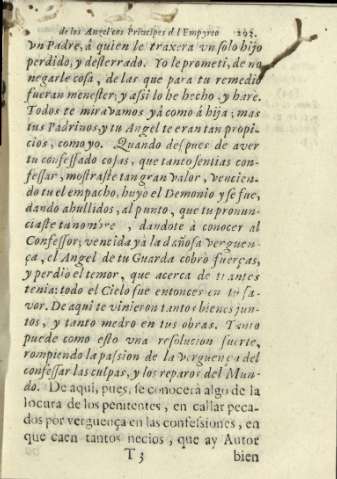 de los Angeles Principes dl Empyreo 293.
vn Padre, á quien le traxera vn solo hijo
perdido, y desterrado. Yo le prometi, de no
negarle cosa, de las que para tu remedio
fueran menester; y assi lo he hecho, y hare.
Todos te miravamos yá como á hija; mas
tus Padrinos, y tu Angel te eran tan propi-
cios, como yo. Quando despues de aver
tu confessado cosas, que tanto sentias con-
fessar, mostraste tan gran valor, vencien-
do tu el empacho, huyó el Demonio y se fue,
dando ahullidos, al punto, que tu pronun-
ciaste tu nombre, dandote à conocer al
Confessor; vencida yà la dañosa verguen-
ça, el Angel de tu Guarda cobrò fuerças,
y perdiò el temor, que acerca de ti antes
tenia: todo el Cielo fue entonces en tu fa-
vor. De aqui te vinieron tantos bienes jun-
tos, y tanto medro en tus obras. Tanto
puede como esto vna resolucion fuerte,
rompiendo la passion de la verguença del
confessar las culpas, y los reparos del Mun-
do. De aqui, pues, se conocerá algo de la
locura de los penitentes, en callar peca-
dos por verguença en las confessiones, en
que caen tantos necios, que ay Autor
T 3 bien